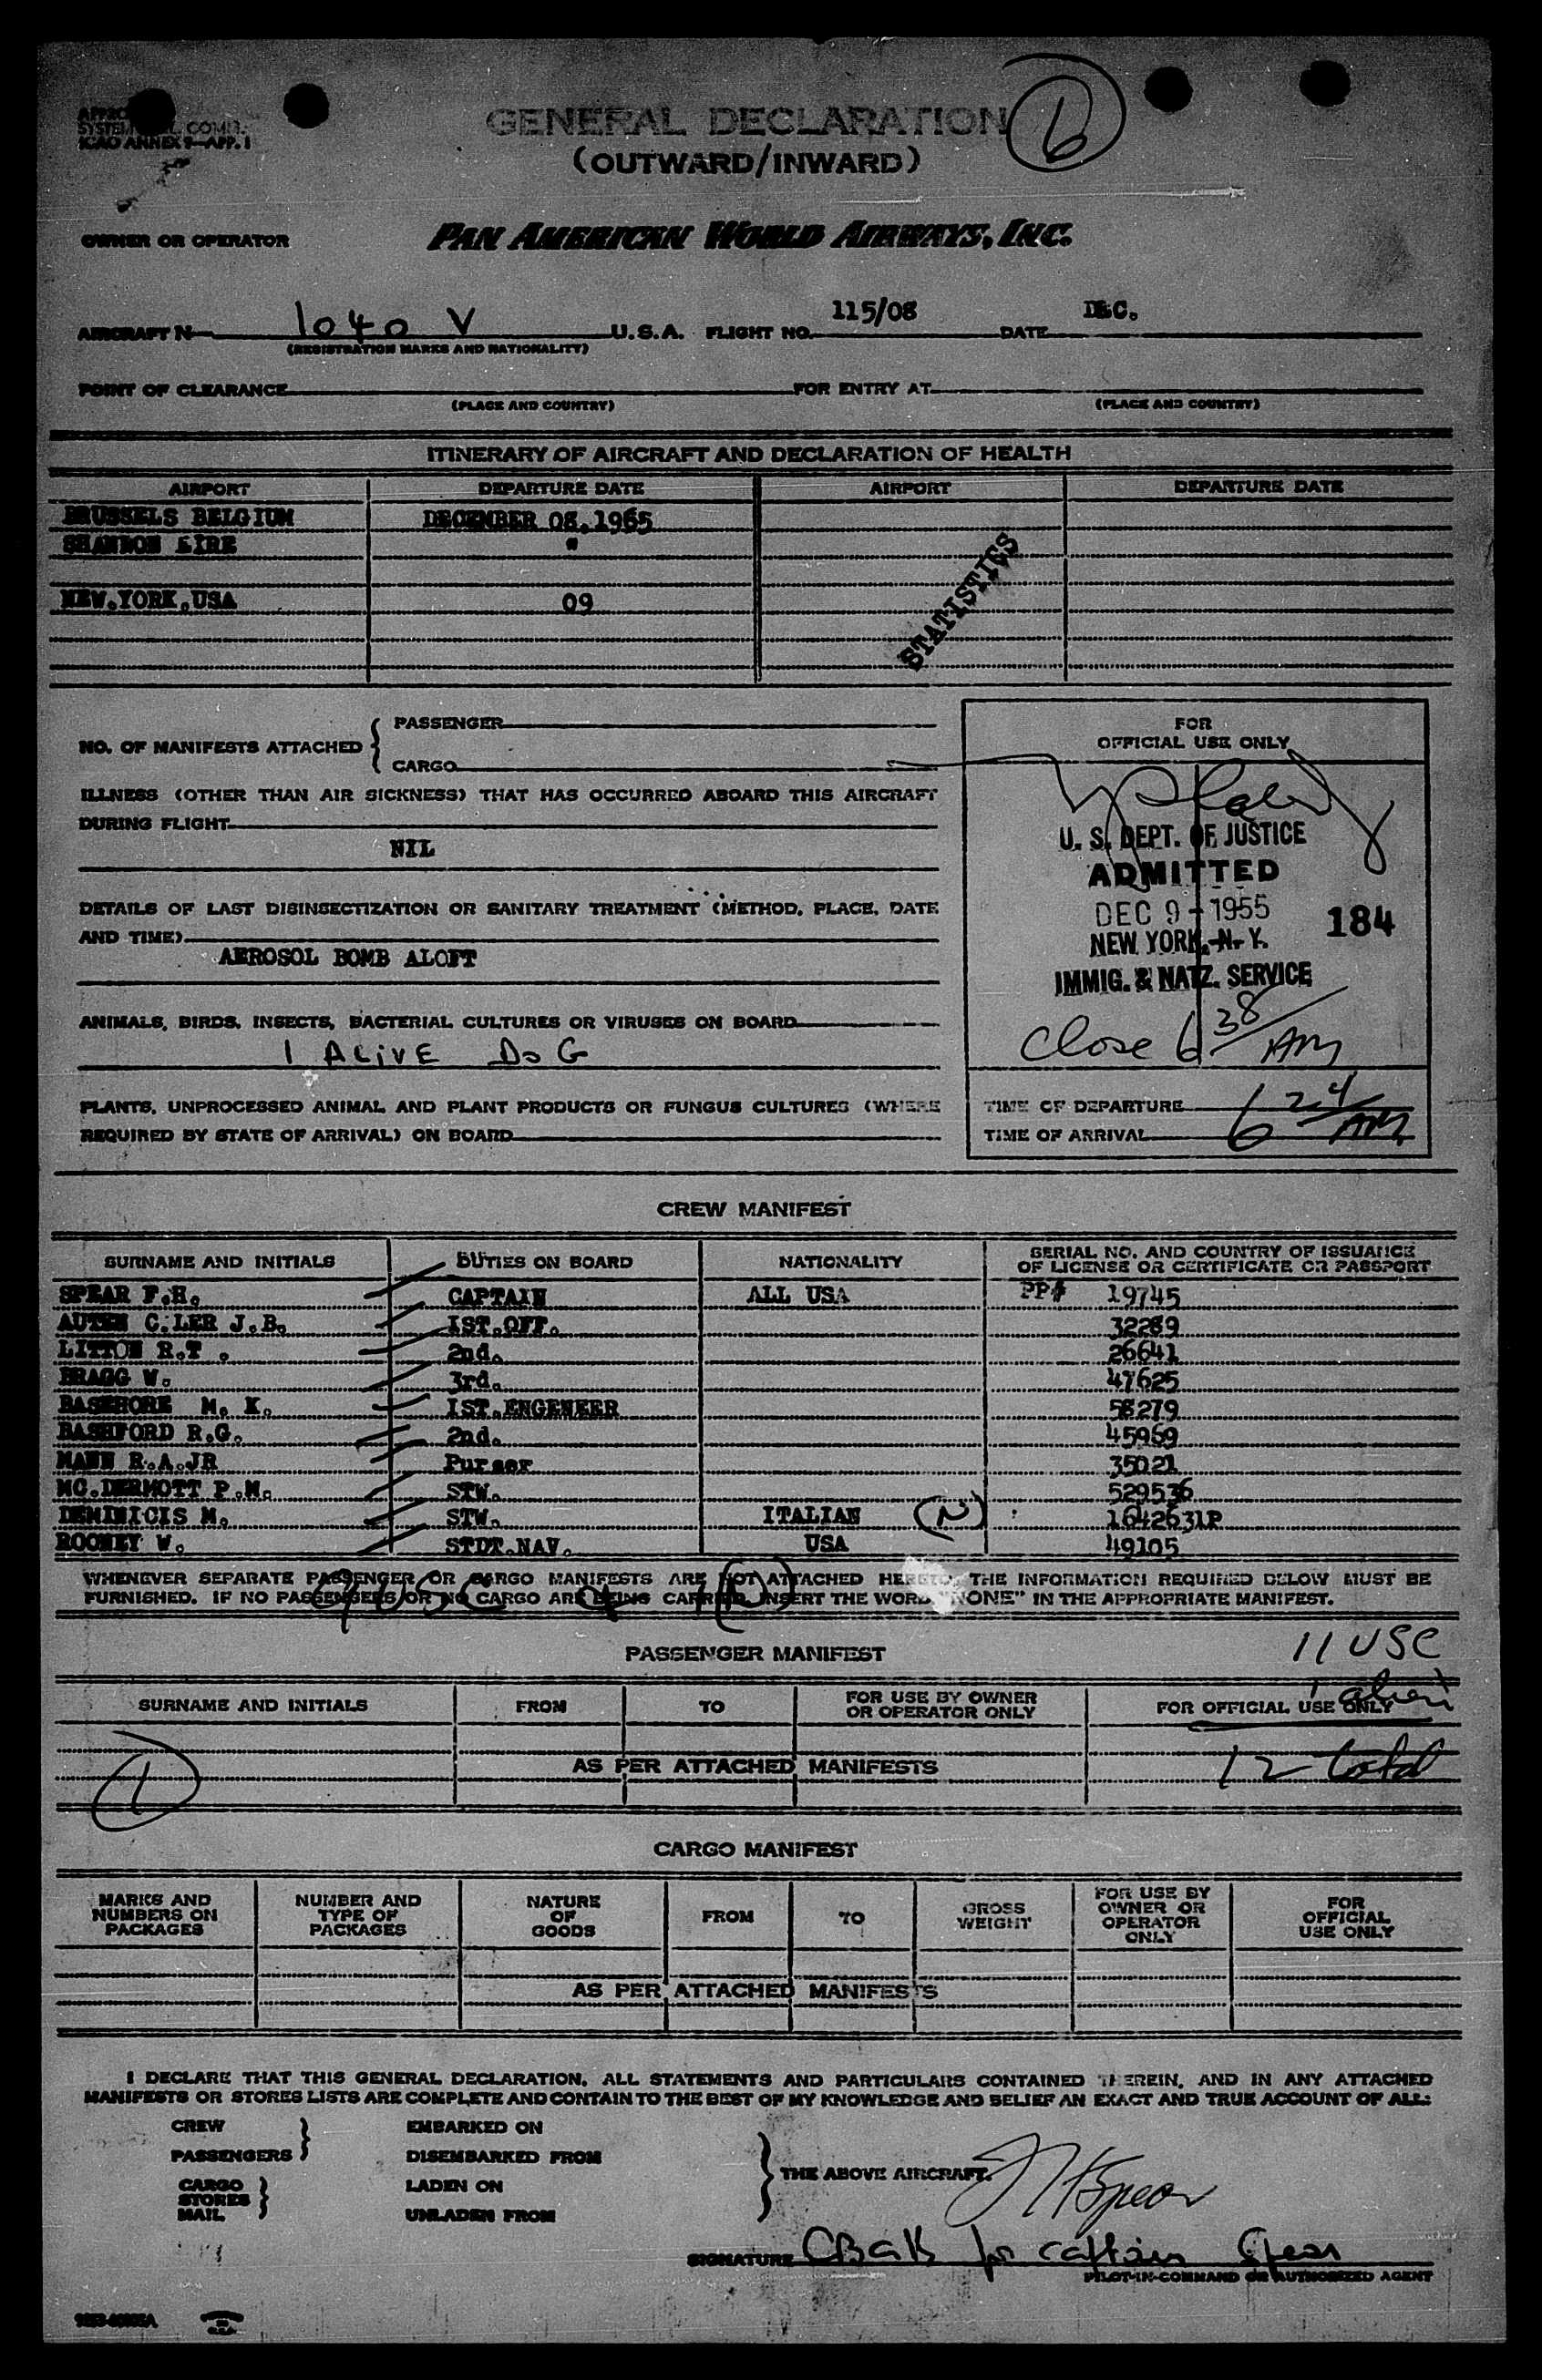 GENERAL DECLARATION
(OUTWARD/INWARD)
6
SYSTEM COMM.
ICAO ANNEX 9—APP. 1
OWNER OR OPERATOR PAN AMERICAN WORLD AIRWAYS, INC.
AIRCRAFT N 1040 V U.S.A. FLIGHT NO. 115/08 DATE DEC.
(REGISTRATION MARKS AND NATIONALITY)
POINT OF CLEARANCE FOR ENTRY AT
(PLACE AND COUNTRY) (PLACE AND COUNTRY)
ITINERARY OF AIRCRAFT AND DECLARATION OF HEALTH
AIRPORT DEPARTURE DATE AIRPORT DEPARTURE DATE
BRUSSELS BELGIUM DECEMBER 08,1965
SHANNON EIRE "
NEW.YORK,USA 09
STATISTICS
NO. OF MANIFESTS ATTACHED { PASSENGER
CARGO
ILLNESS (OTHER THAN AIR SICKNESS) THAT HAS OCCURRED ABOARD THIS AIRCRAFT
DURING FLIGHT
NIL
DETAILS OF LAST DISINSECTIZATION OR SANITARY TREATMENT (METHOD, PLACE, DATE
AND TIME)
AEROSOL BOMB ALOFT
ANIMALS, BIRDS, INSECTS, BACTERIAL CULTURES OR VIRUSES ON BOARD
1 ALIVE DOG
PLANTS, UNPROCESSED ANIMAL AND PLANT PRODUCTS OR FUNGUS CULTURES (WHERE
REQUIRED BY STATE OF ARRIVAL) ON BOARD
FOR
OFFICIAL USE ONLY
U. S. DEPT. OF JUSTICE
ADMITTED
DEC 9 - 1955 184
NEW YORK, N. Y.
IMMIG. & NATZ. SERVICE
Close 6 38/AM
TIME OF DEPARTURE
TIME OF ARRIVAL 6 24/AM
CREW MANIFEST
SURNAME AND INITIALS DUTIES ON BOARD NATIONALITY SERIAL NO. AND COUNTRY OF ISSUANCE
OF LICENSE OR CERTIFICATE OR PASSPORT
SPEAR F.H. CAPTAIN ALL USA PP# 19745
J.B. IST.OFF. 32289
LITTON R.T . 2nd. 26641
BRAGG W. 3rd. 47625
BASEHORE M. K. IST.ENGENEER 58279
BASHFORD R.G. 2nd. 45969
MANN R.A.JR Purser 35021
MC.DERMOTT P.M. STW. 529536
DEMINICIS M. STW. ITALIAN (N) 1642631P
ROONEY W. STDT.NAV. USA 49105
WHENEVER SEPARATE PASSENGER OR CARGO MANIFESTS ARE NOT ATTACHED HERETO, THE INFORMATION REQUIRED BELOW MUST BE
FURNISHED. IF NO PASSENGERS/OR NO CARGO ARE BEING CARRIED INSERT THE WORD "NONE" IN THE APPROPRIATE MANIFEST.
PASSENGER MANIFEST
11 USC
1 alien
SURNAME AND INITIALS FROM TO FOR USE BY OWNER
OR OPERATOR ONLY FOR OFFICIAL USE ONLY
12 total
AS PER ATTACHED MANIFESTS
1
CARGO MANIFEST
MARKS AND
NUMBERS ON
PACKAGES
NUMBER AND
TYPE OF
PACKAGES
NATURE
OF
GOODS
FROM
TO
GROSS
WEIGHT
FOR USE BY
OWNER OR
OPERATOR
ONLY
FOR
OFFICIAL
USE ONLY
AS PER ATTACHED MANIFESTS
I DECLARE THAT THIS GENERAL DECLARATION, ALL STATEMENTS AND PARTICULARS CONTAINED THEREIN, AND IN ANY ATTACHED
MANIFESTS OR STORES LISTS ARE COMPLETE AND CONTAIN TO THE BEST OF MY KNOWLEDGE AND BELIEF AN EXACT AND TRUE ACCOUNT OF ALL:
CREW EMBARKED ON
PASSENGERS } DISEMBARKED FROM
CARGO LADEN ON
STORES }
MAIL UNLADEN FROM
} THE ABOVE AIRCRAFT.
Spear
SIGNATURE for captain Spear
PILOT-IN-COMMAND OR AUTHORIZED AGENT